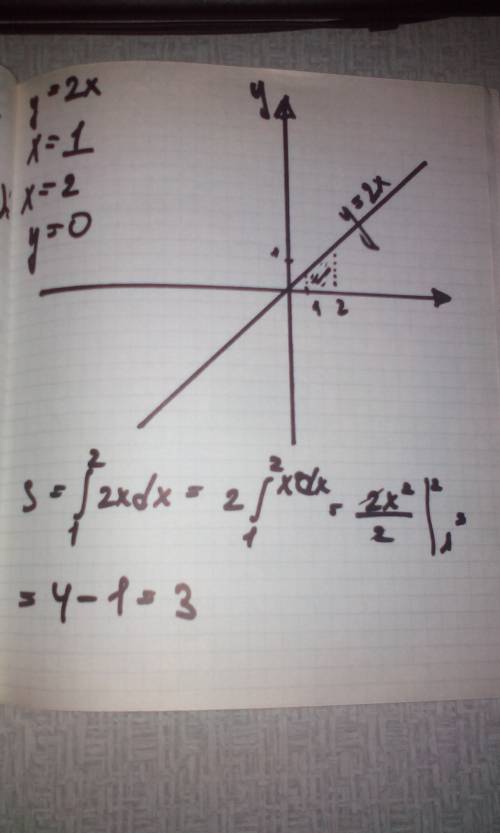 y = 2x
x = 1
x = 2
y = 0
y
y = 2x
1 2
S = ∫₁² 2x dx = 2 ∫₁² x dx = 2x²/2 |₁²
= 4 - 1 = 3